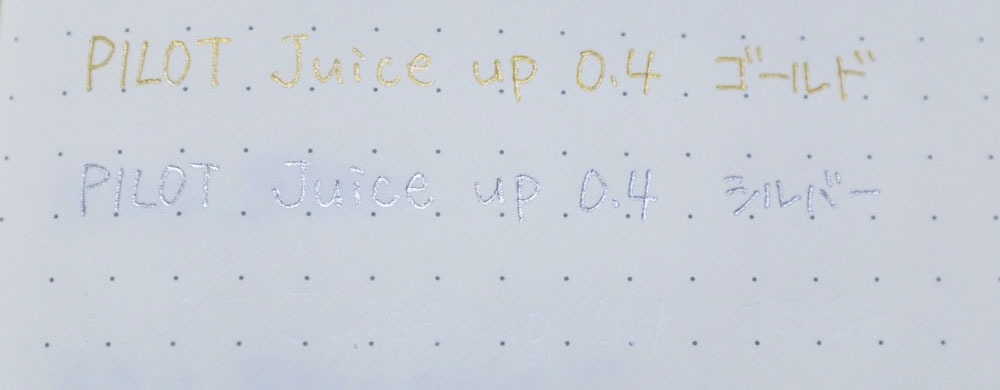 PILOT Juice up 0.4 ゴールド
PILOT Juice up 0.4 シルバー
PILOT Juice up 0.4 ホワイト